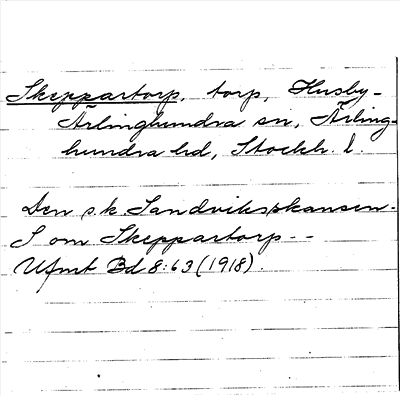 Skeppartorp, torp, Husby-
Ärlinghundra sn, Ärling-
hundra hd, Stockh. l.
Den s.k. Sandviksskansen.
S om Skeppartorp --
Ufmt Bd 8:63 (1918).